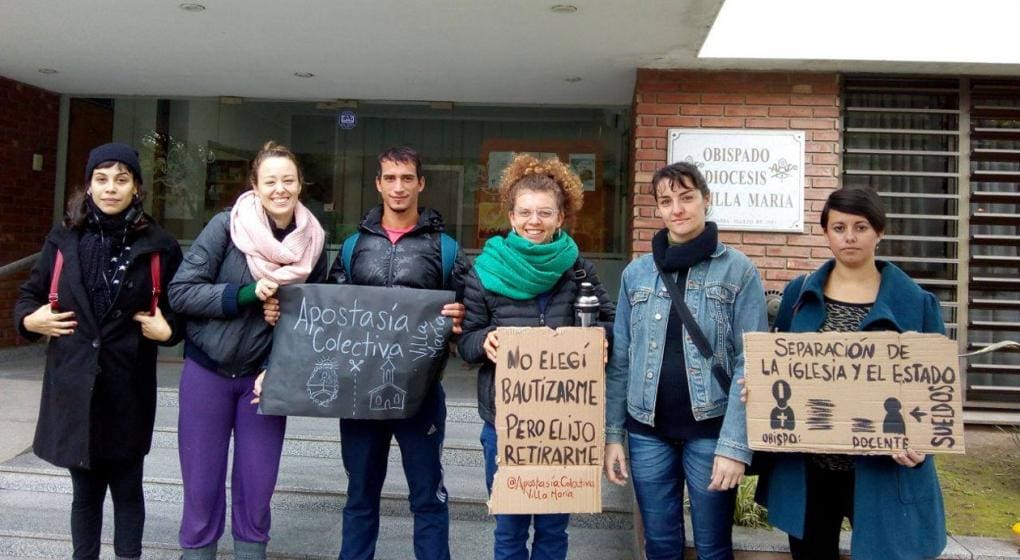 OBISPADO
DIOCESIS
VILLA MARIA
APOSTASÍA
COLECTIVA
VILLA
MARÍA
NO ELEGÍ
BAUTIZARME
PERO ELIJO
RETIRARME
@APOSTASÍA COLECTIVA
VILLA MARÍA
SEPARACIÓN DE
LA IGLESIA Y EL ESTADO
OBISPO:
DOCENTE
SUELDOS